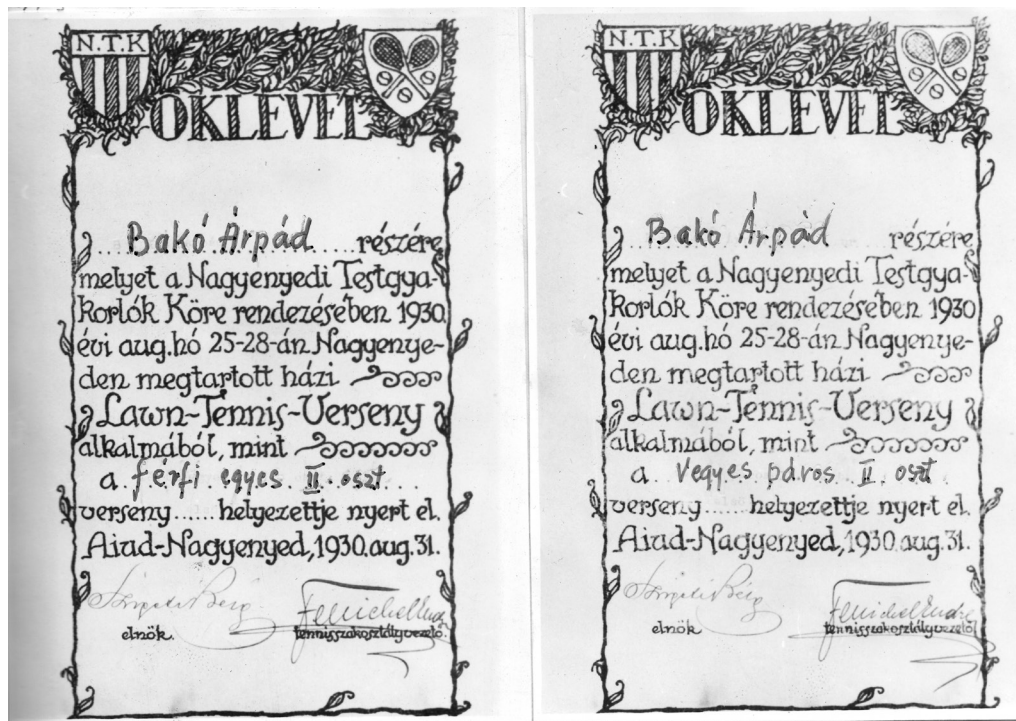 N.T.K
OKLEVÉL
Bakó Árpád részére
melyet a Nagyenyedi Testgya-
korlók Köre rendezésében 1930
évi aug. hó 25-28-án Nagyenye-
den megtartott házi
Lawn-Tennis-Verseny
alkalmából, mint
a férfi egyes II. oszt
verseny ...... helyezettje nyert el.
Aiud-Nagyenyed, 1930. aug. 31.
elnök.
tennisszakosztályvezető.
N.T.K
OKLEVÉL
Bakó Árpád részére
melyet a Nagyenyedi Testgya-
korlók Köre rendezésében 1930
évi aug. hó 25-28-án Nagyenye-
den megtartott házi
Lawn-Tennis-Verseny
alkalmából, mint
a vegyes páros II. oszt
verseny ...... helyezettje nyert el.
Aiud-Nagyenyed, 1930. aug. 31.
elnök.
tennisszakosztályvezető.